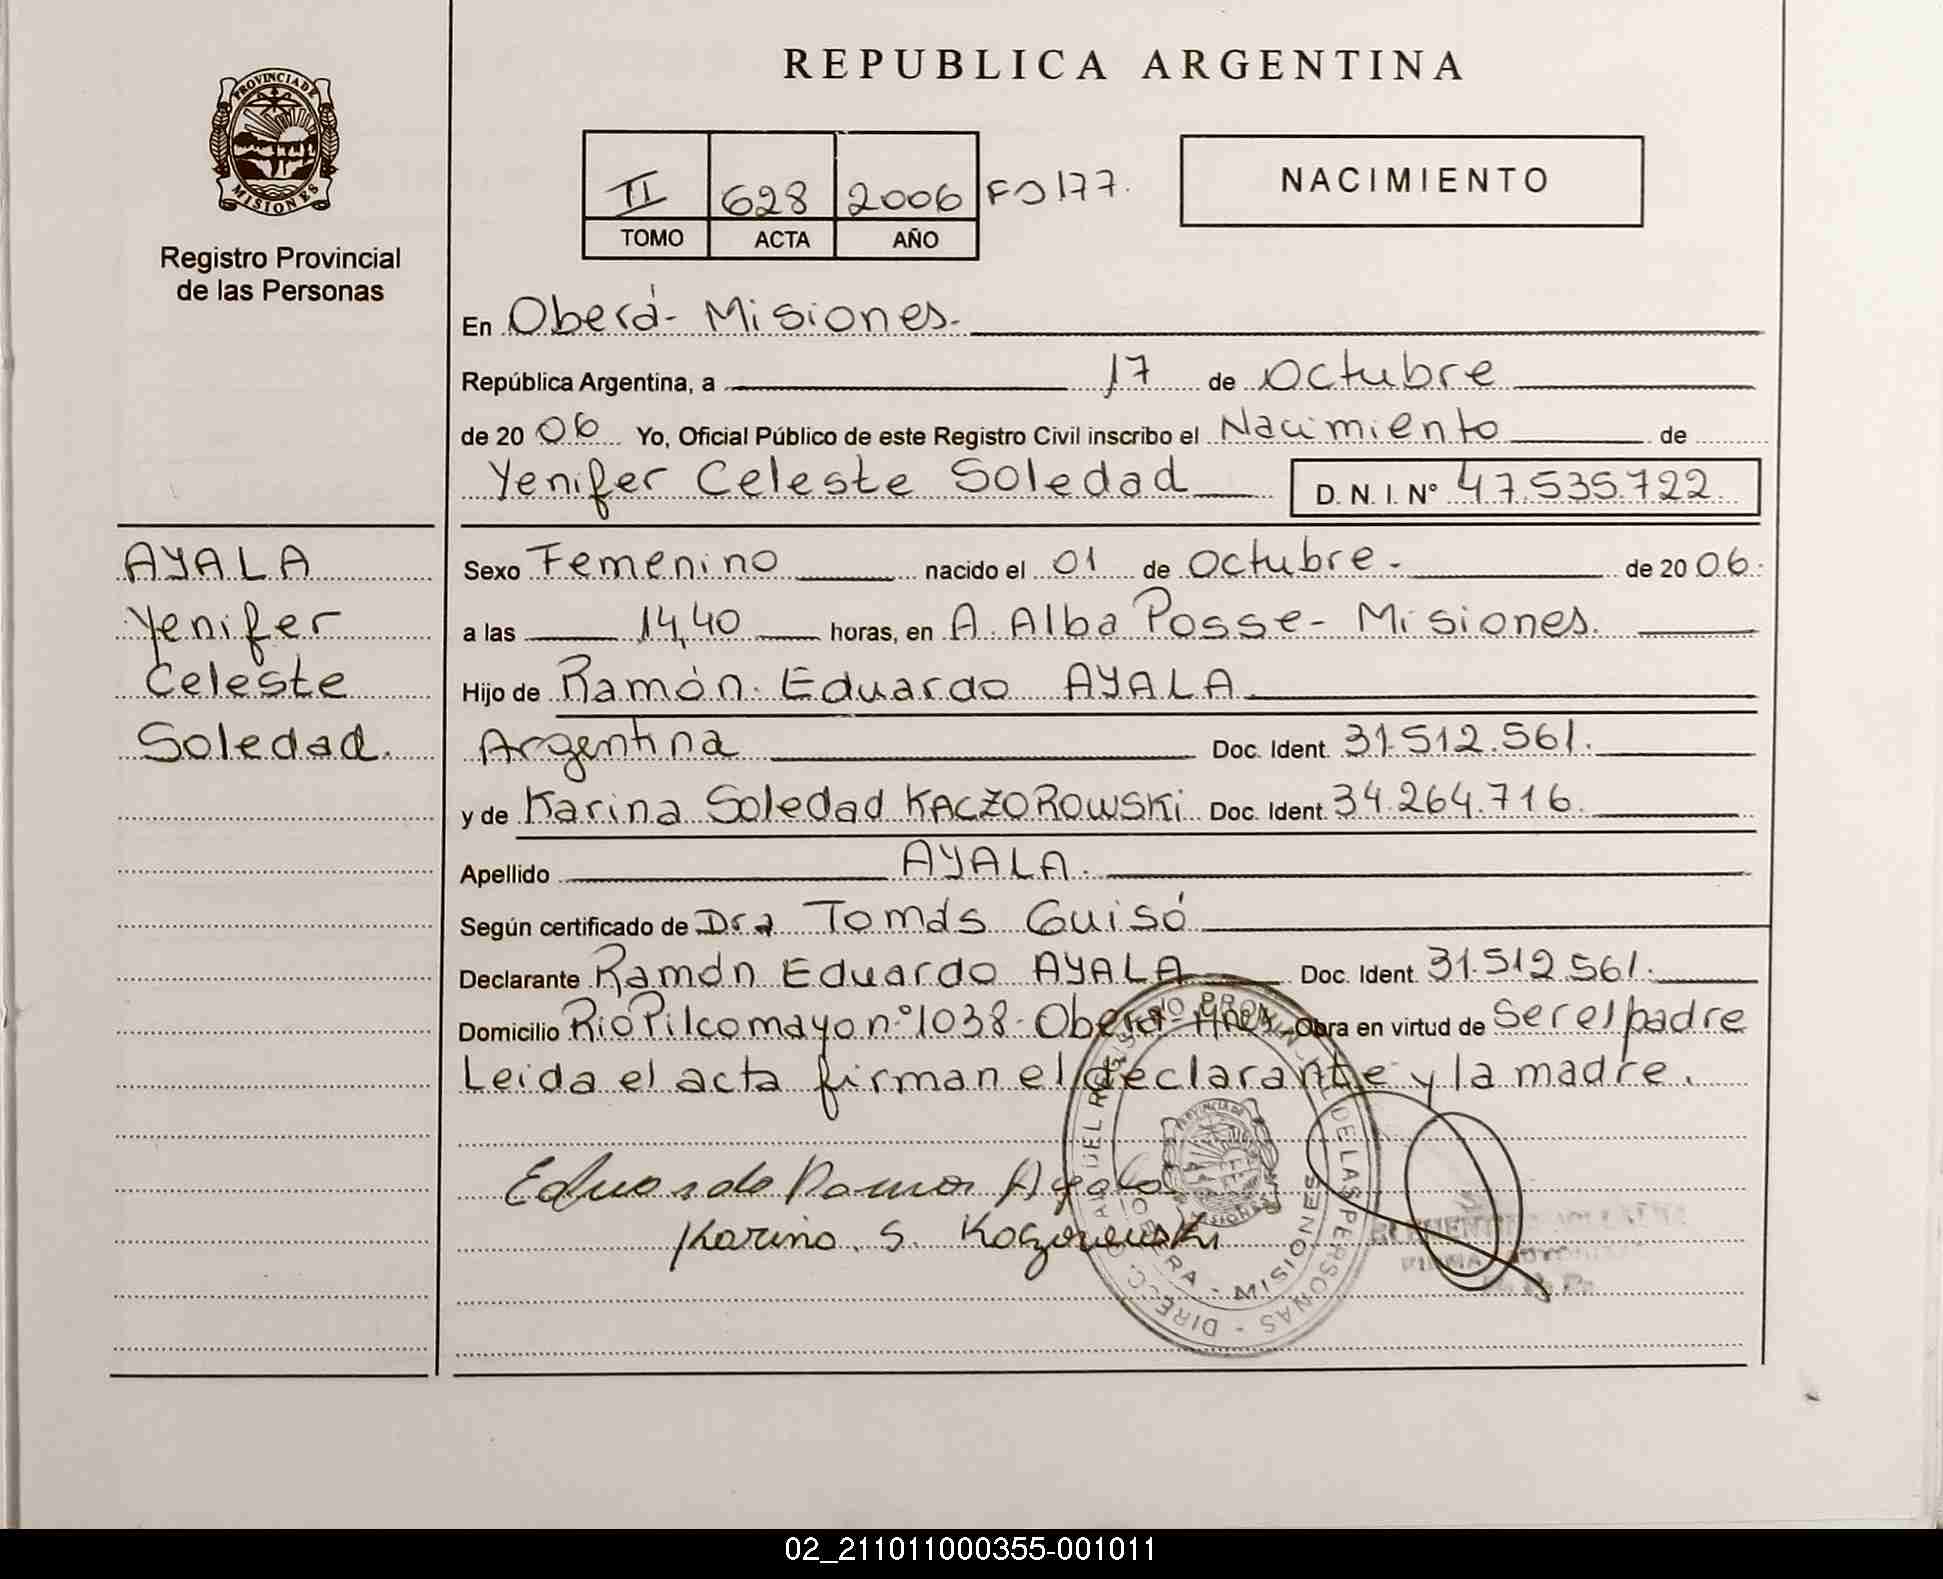 PROVINCIA DE
MISIONES
Registro Provincial
de las Personas
REPUBLICA ARGENTINA
II 628 2006 Fº 177.
TOMO ACTA AÑO
NACIMIENTO
En Oberá - Misiones.-
República Argentina, a 17 de Octubre
de 2006 Yo, Oficial Público de este Registro Civil inscribo el Nacimiento de
Yenifer Celeste Soledad D. N. I. Nº 47.535.722
AYALA
Yenifer
Celeste
Soledad.
Sexo Femenino nacido el 01 de Octubre.- de 2006.
a las 14,40 horas, en A. Alba Posse - Misiones.
Hijo de Ramón Eduardo AYALA
Argentina Doc. Ident. 31.512.561.
y de Karina Soledad KACZOROWSKi Doc. Ident. 34.264.716.
Apellido AYALA.
Según certificado de Dra Tomás Guisó
Declarante Ramón Eduardo AYALA Doc. Ident. 31.512.561.
Domicilio Rio Pilcomayo n.º 1038- Oberá - Mnes Obra en virtud de Ser el padre
Leida el acta firman el declarante y la madre.
Eduardo Ramon Ayala
Karina. S. Kaczorowski
DEL REGISTRO PROVINCIAL DE LAS PERSONAS - DIRECC
MISIONES
PROVINCIA DE
MISIONES
02_211011000355-001011